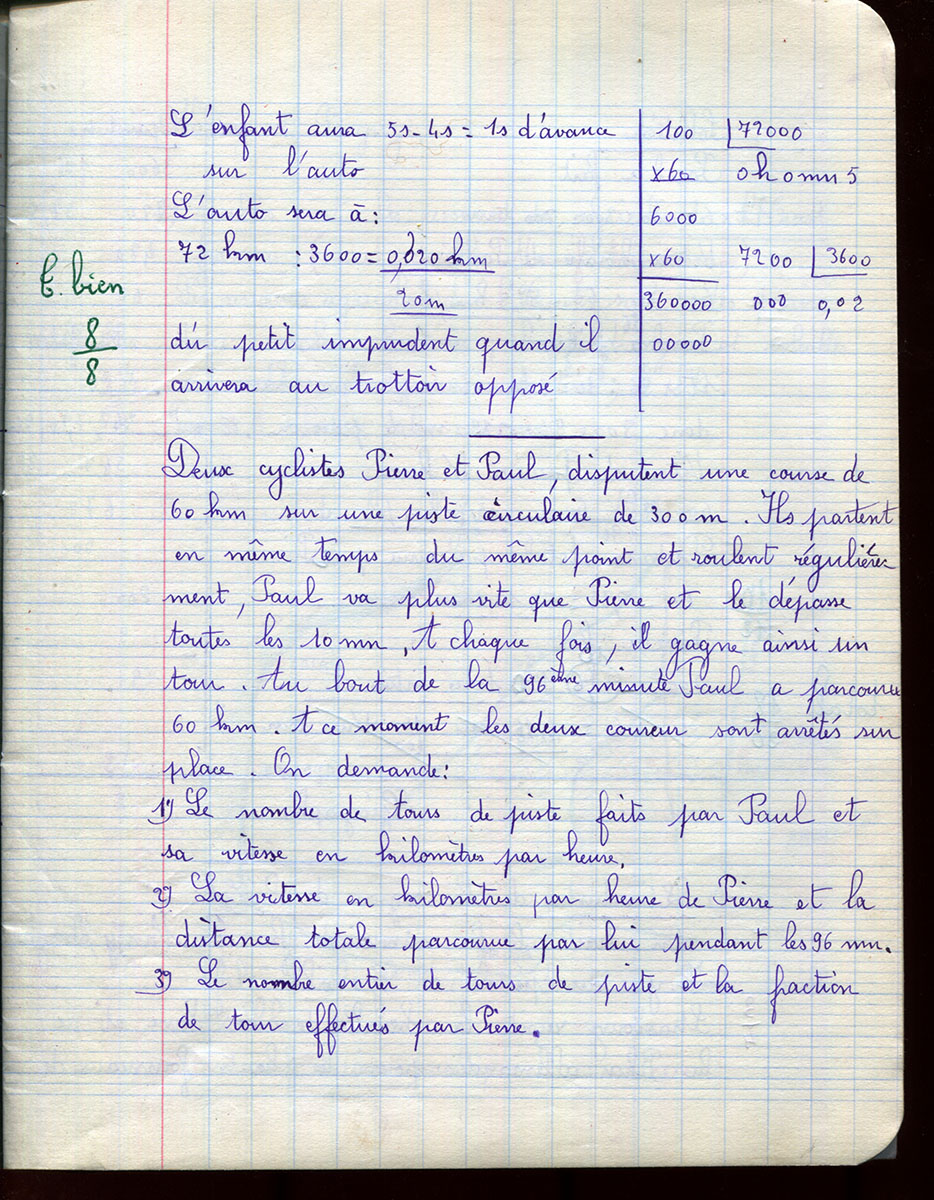 L'enfant aura 5s - 4s = 1s d'avance
sur l'auto
L'auto sera à :
72 km : 3600 = 0,020 km
20m
du petit imprudent quand il
arrivera au trottoir opposé
100 72000
x60 0h0mn5
6000
x60 7200 3600
360000 000 0,02
00000
T. bien
8
8
Deux cyclistes Pierre et Paul, disputent une course de
60 km sur une piste circulaire de 300 m. Ils partent
en même temps du même point et roulent régulière
ment, Paul va plus vite que Pierre et le dépasse
toutes les 10 mn, A chaque fois, il gagne ainsi un
tour. Au bout de la 96ème minute Paul a parcouru
60 km. A ce moment les deux coureur sont arrêtés sur
place. On demande :
1°) Le nombre de tours de piste faits par Paul et
sa vitesse en kilomètres par heure.
2°) La vitesse en kilomètres par heure de Pierre et la
distance totale parcourue par lui pendant les 96 mn.
3°) Le nombre entier de tours de piste et la fraction
de tour effectués par Pierre.